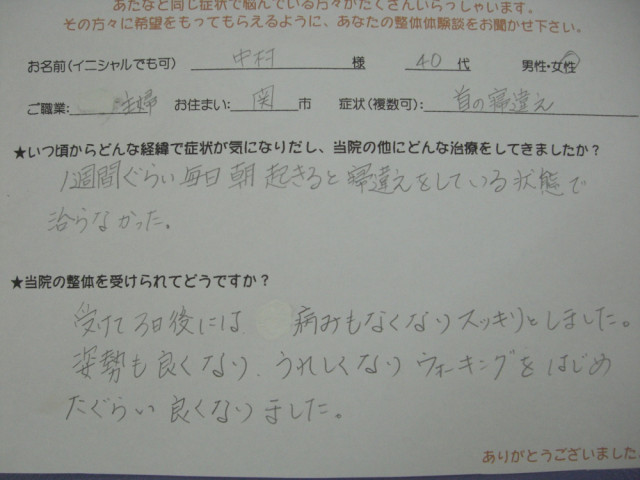 あなたと同じ症状で悩んでいる方々がたくさんいらっしゃいます。
その方々に希望をもってもらえるように、あなたの整体体験談をお聞かせ下さい。
お名前(イニシャルでも可) 中村 様 40代 男性・女性
ご職業: 主婦 お住まい: 関 市 症状(複数可): 首の寝違え
★いつ頃からどんな経緯で症状が気になりだし、当院の他にどんな治療をしてきましたか?
1週間ぐらい毎日朝起きると寝違えをしている状態で
治らなかった。
★当院の整体を受けられてどうですか?
受けて3日後には 痛みもなくなりスッキリとしました。
姿勢も良くなり、うれしくなりウォーキングをはじめ
たぐらい良くなりました。
ありがとうございました